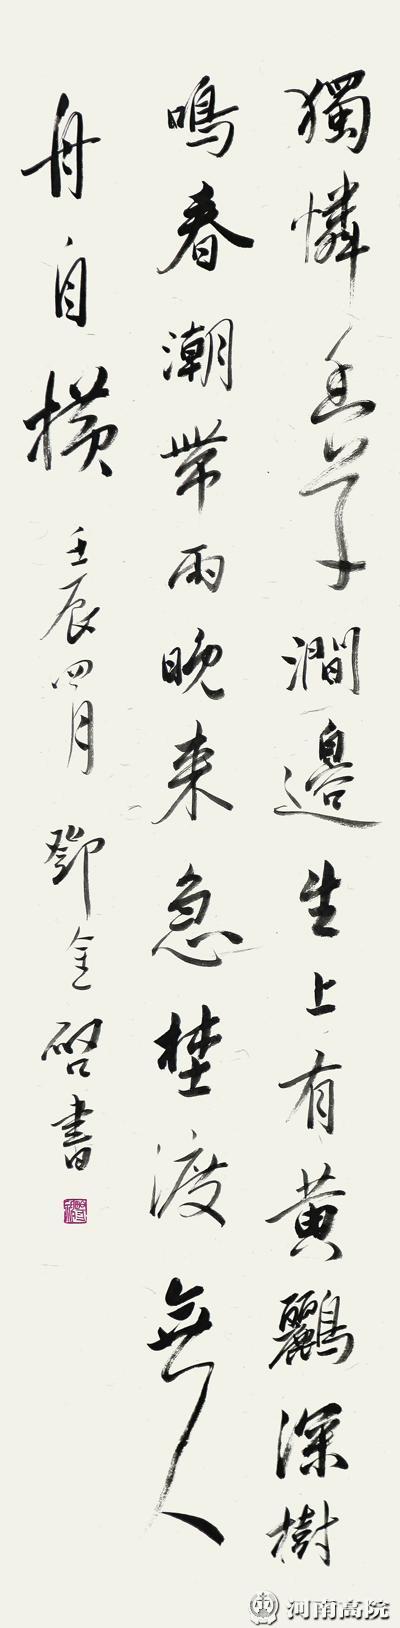 獨憐幽草澗邊生上有黃鸝深樹
鳴春潮帶雨晚来急埜渡無人
舟自橫 壬辰四月 鄧金啓書
河南高院